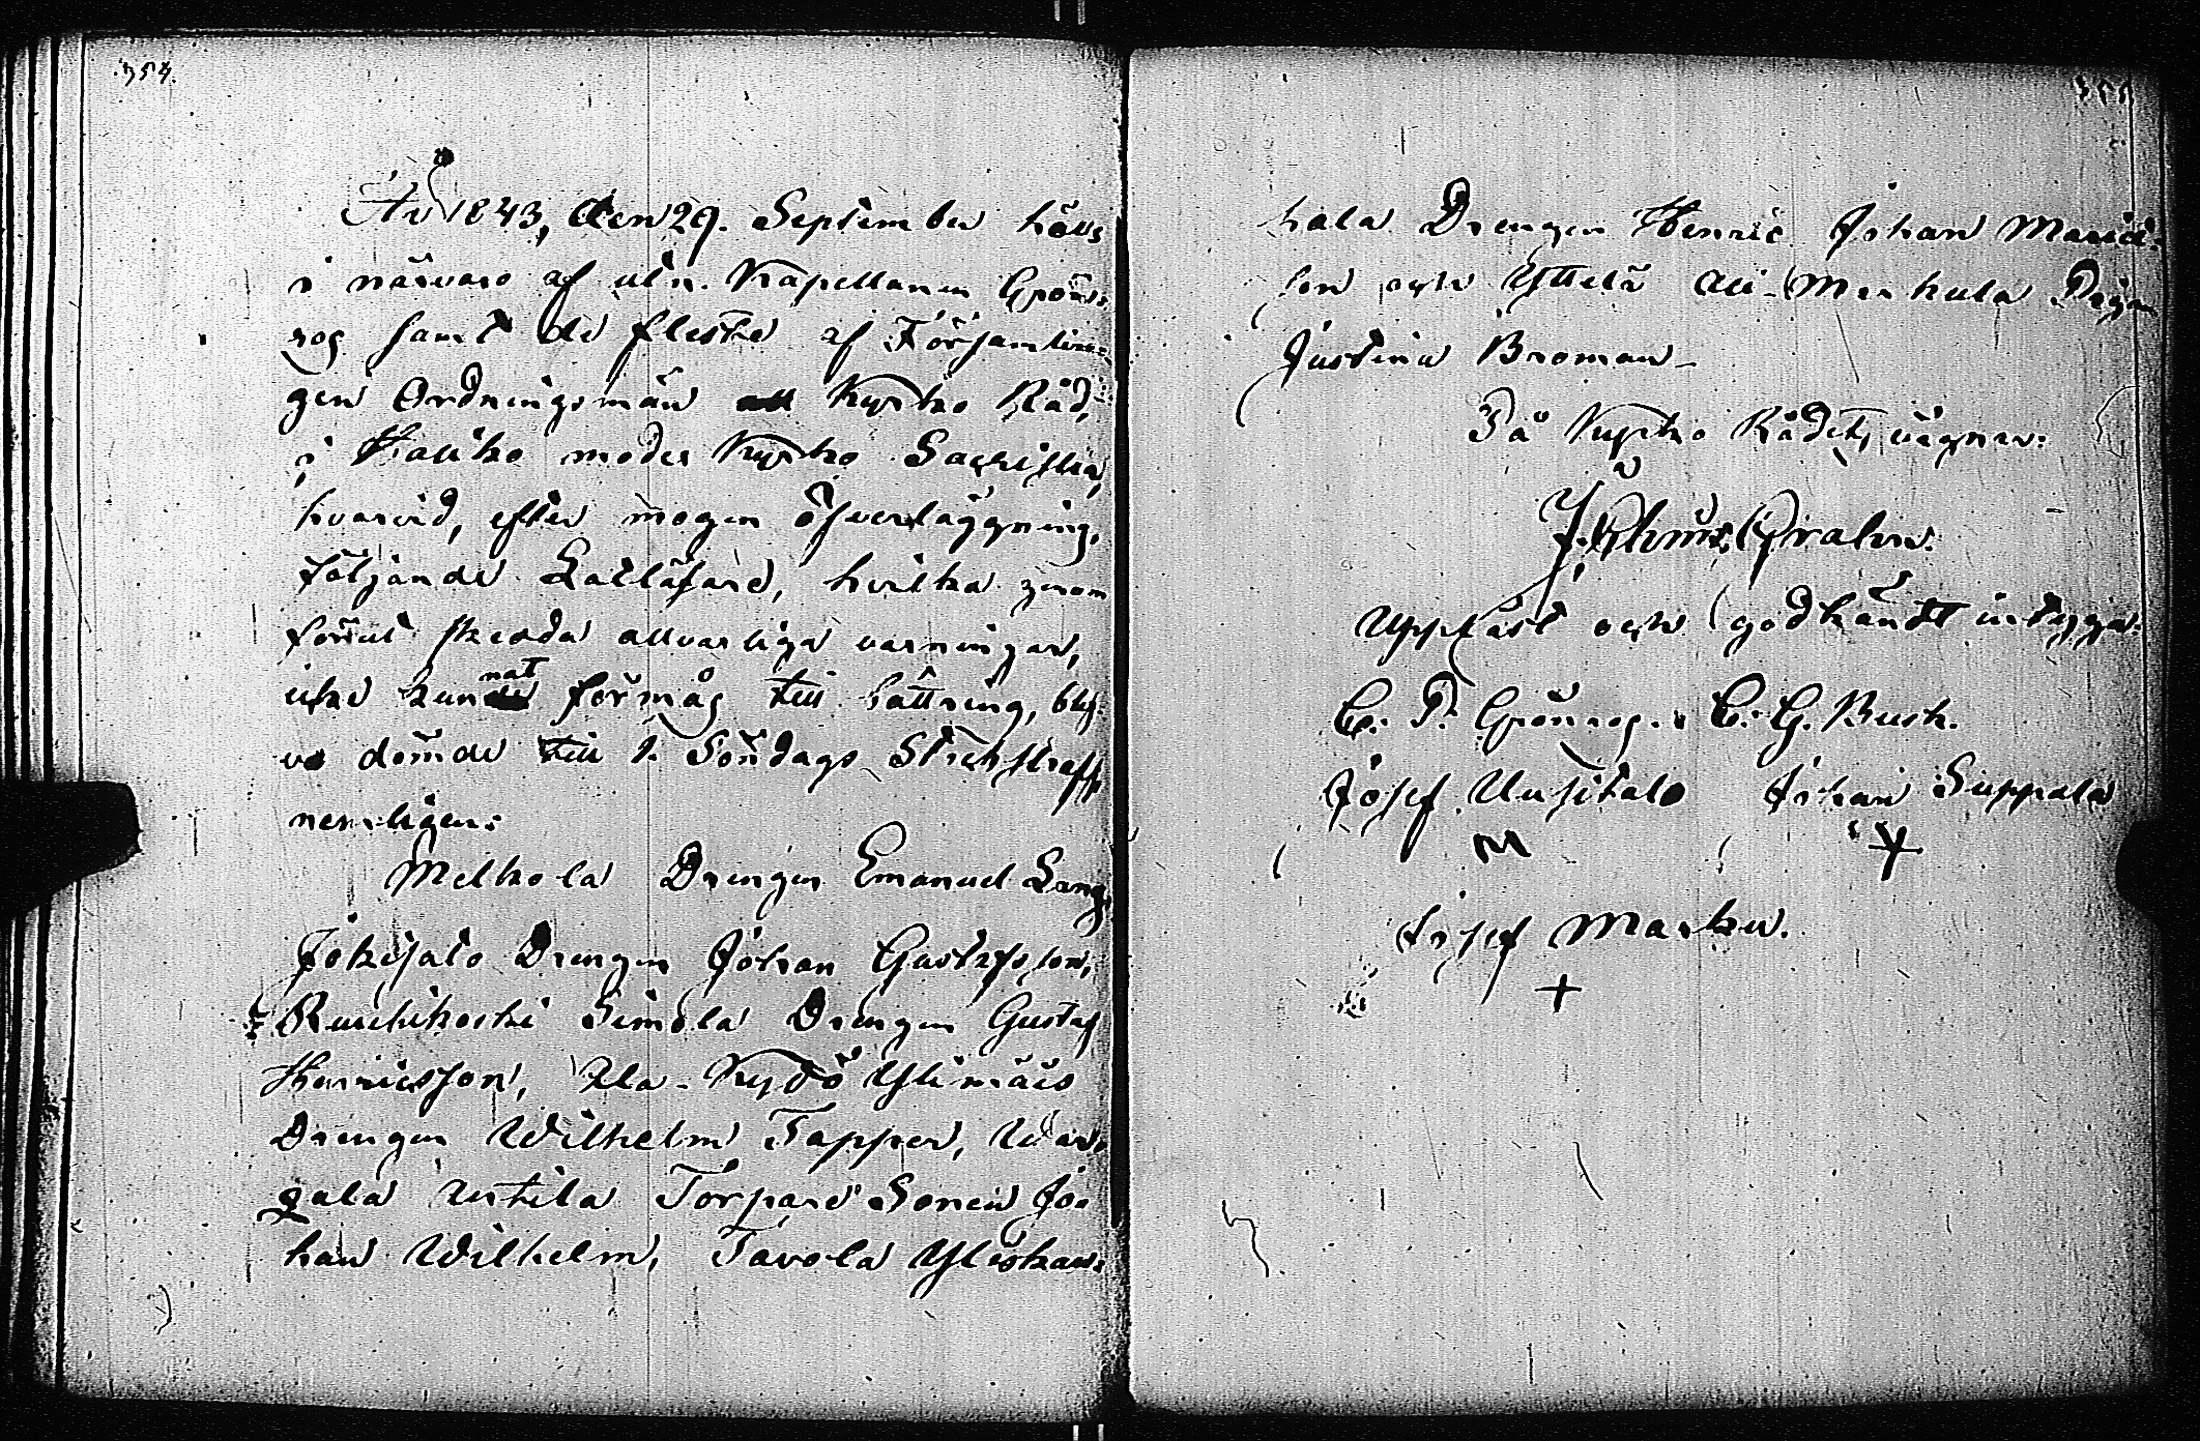 354.
År 1843, den 29. September hölls
i närvaro af utn. Kapellanen Grön-
rog samt de fleste af Församlin-
gen Ordningsmän Kyrko Råd,
i Haliko moder Kyrko Sacristia,
hvarvid, efter mogen öfverläggning,
följande Latläsare, hvilka genom
förrut skedda allvarliga varningar,
icke kunnat förmås till bättring, blef-
vo dömde till 1. Söndags Stockstraff
nemligen:
Melkola Drengen Emanuel Lang,
Jokisalo Drengen Johan Gustafsson,
Ruishkoski Simola Drengen Gustaf
Henricsson, Ala-Kyttö Ylimäis
Drengen Wilhelm Tapper, War-
gala Uotila Torpare Sonen Jo-
han Wilhelm, Tavola Yliskau-
355
hala Drengen Henric Johan Marici-
son och Yttelä Ali-Markula Pigan
Justina Broman.
På Kyrko Rådets vägnar:
Uppläst och godkändt intyga:
C. P. Grönrog. C. G. Busk.
Josef Uusitalo Johan Suppala
Josef Marku.